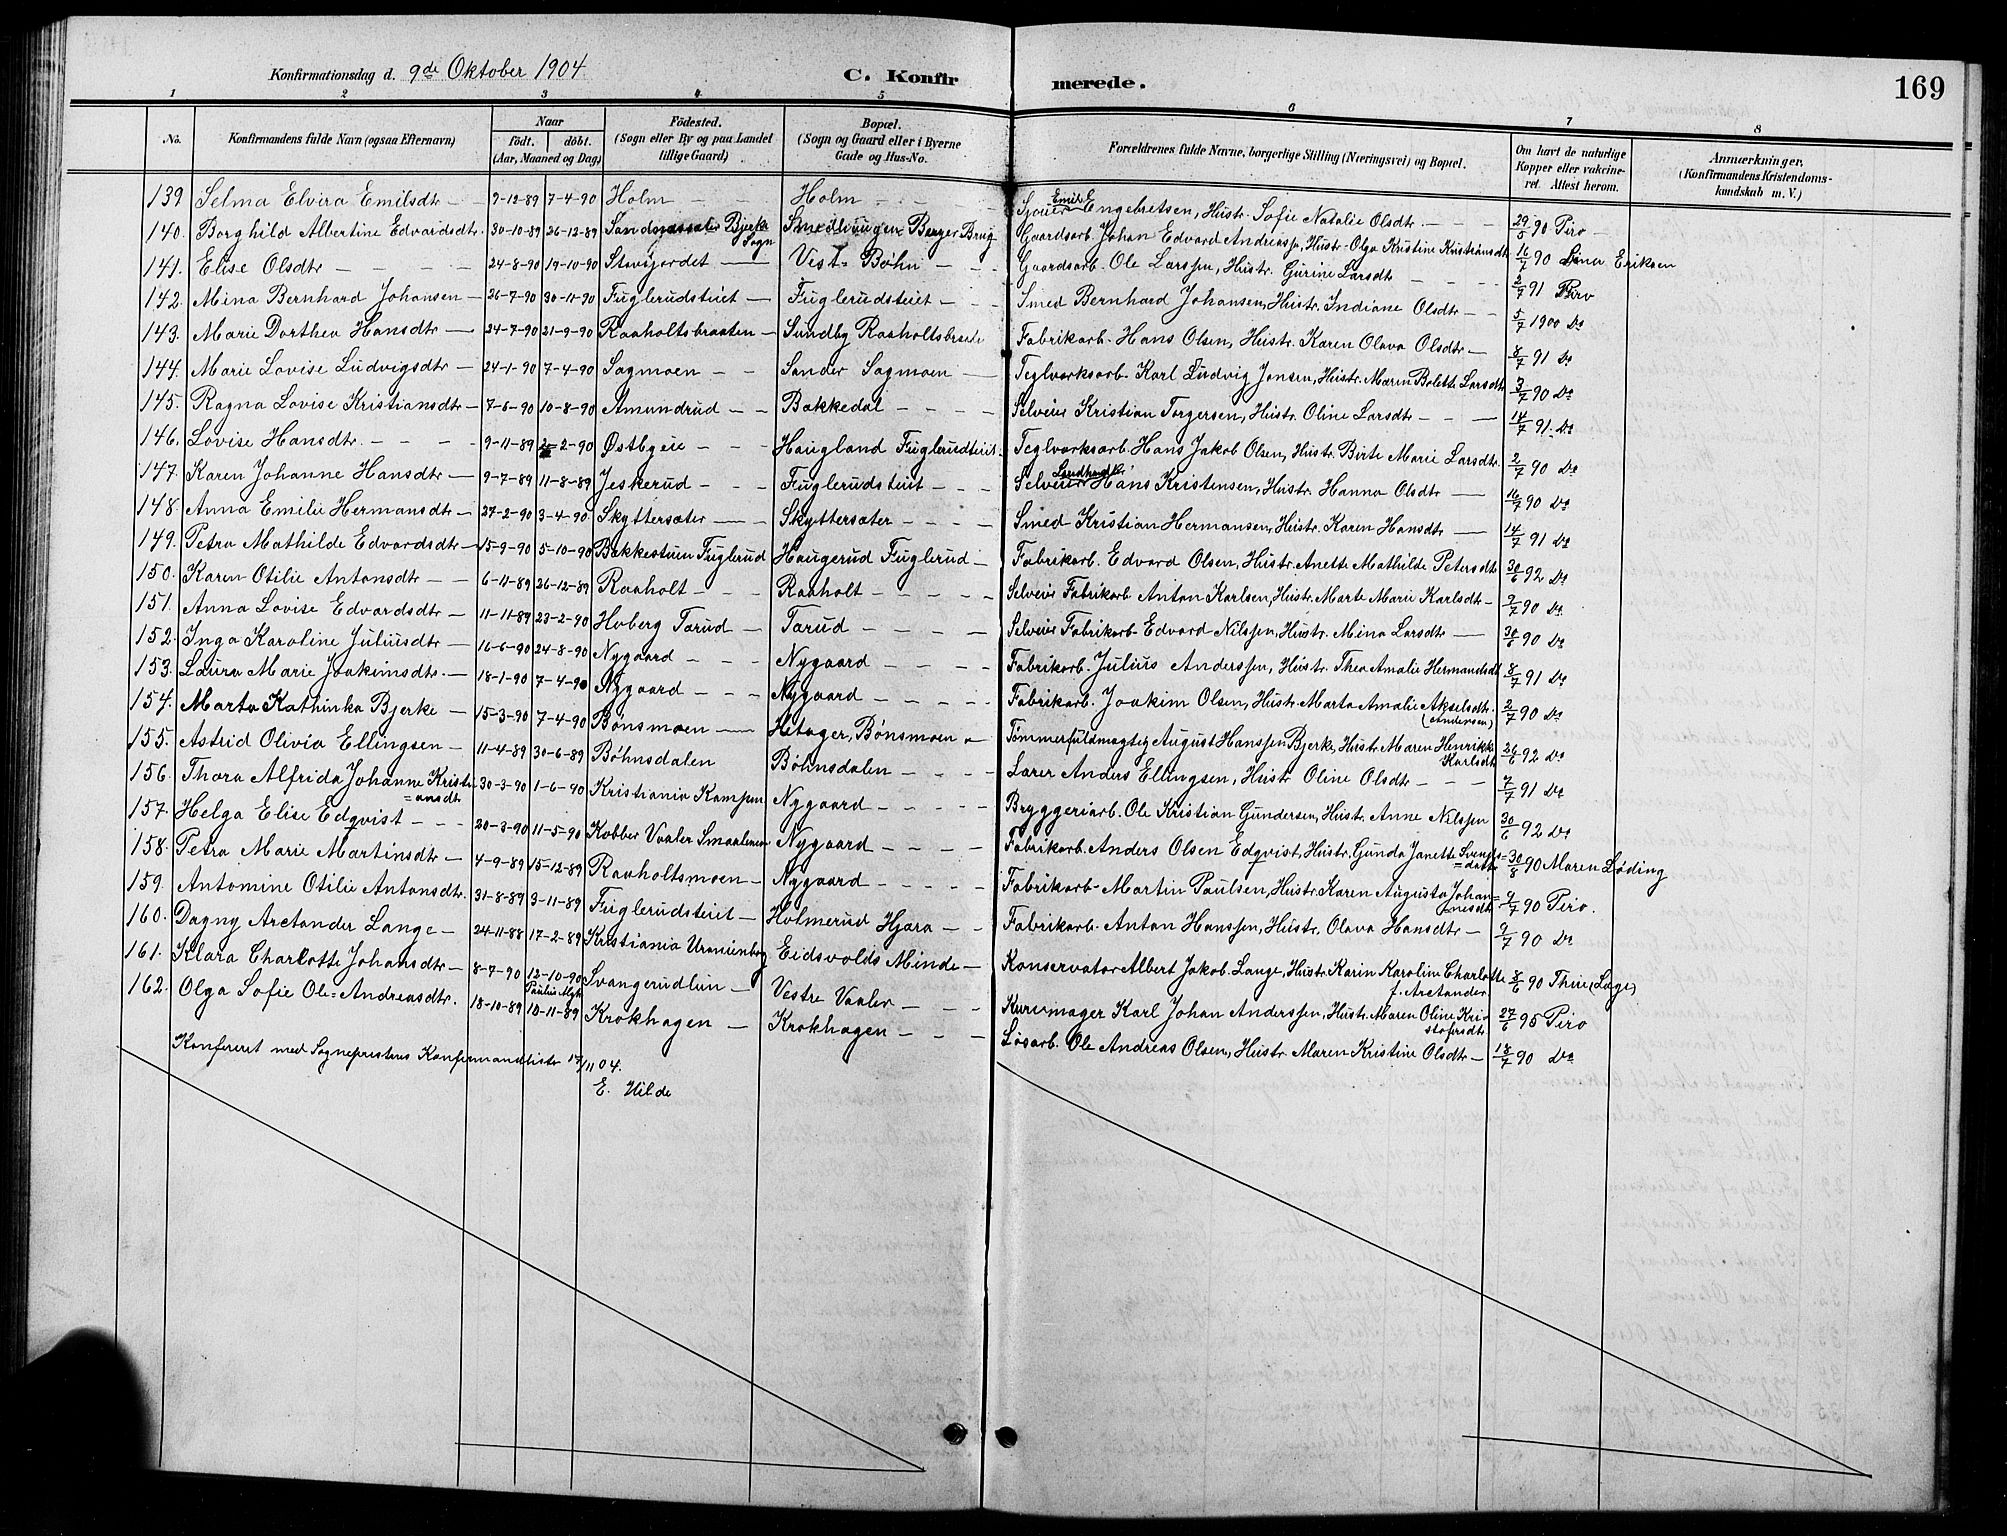 Konfirmationsdag d. 9de Oktober 1904
C. Konfirmerede.
169
1 2 3 4 5 6 7 8
No. Konfirmandens fulde Navn (ogsaa Efternavn) Naar født. døbt. (Aar, Maaned og Dag) Fødested. (Sogn eller By og paa Landet tillige Gaard) Bopæl. (Sogn og Gaard eller i Byerne Gade og Hus-No. Forældrenes fulde Navne, borgerlige Stilling (Næringsvei) og Bopæl. Om havt de naturlige Kopper eller vakcineret. Attest herom. Anmærkninger. (Konfirmandens Kristendomskundskab m. V.)
139 Selma Elvira Emilsdtr 9-12-89 7-4-90 Holm Holm Sjouer Emil Engebretsen, Hustr. Sofie Natalie Olsdtr. 29/5 90 Piro
140. Borghild Albertine Edvardsdtr. 30-10-89 26-12-89 Bjerke Sogn Berger Brug Gaardsarb. Johan Edvard Andreassen, Hustr. Olga Kristine Kristiansdt 16/7 90 Lina Eriksen
141. Elise Olsdtr 24-8-90 19-10-90 Stavsjordet Vest-Bøhn Gaardsarb. Ole Larssen, Hustr. Gurine Larsdtr 2/7 91 Piro
142. Mina Bernhard Johansen 26-7-90 30-11-90 Fuglerudsteiet Fuglerudsteiet Smed Bernhard Johansen, Hustr. Indiane Olsdtr 5/7 1900 Do
143. Marie Dorthea Hansdtr 24-7-90 21-9-90 Raaholtsbraaten Sundby Raaholtsbraate Fabrikarb. Hans Olsen, Hustr. Karen Olava Olsdtr 8/7 91 Do
144. Marie Lovise Ludvigsdtr 24-1-90 7-4-90 Sagmoen Sander Sagmoen Teglverksarb. Karl Ludvig Jonsen, Hustr. Maren Bolette Larsdtr 3/7 90 Do
145. Ragna Lovise Kristiansdtr 7-6-90 10-8-90 Amundrud Bakkedal Selveier Kristian Torgersen, Hustr. Oline Larsdtr 14/7 91. Do
146. Lovise Hansdtr. 9-11-89 2-90 Østbyeie Haugland Fuglerudteiet. Teglverksarb. Hans Jakob Olsen, Hustr. Birte Marie Larsdtr. 2/7 90 Do
147. Karen Johanne Hansdtr 9-7-89 11-8-89 Jeskerud Fuglerudsteiet Selveier Landhandl. Hans Kristensen, Hustr. Hanna Olsdtr 16/7 90 Do
148. Anna Emilie Hermansdtr 27-2-90 3-4-90 Skyttersæter Skyttersæter Smed Kristian Hermansen, Hustr. Karen Hansdtr 14/7 91 Do
149. Petra Mathilde Edvardsdtr 15-9-90 5-10-90 Bakkestuen Fuglerud Haugerud Fuglerud Fabrikarb. Edvard Olsen, Hustr. Anette Mathilde Petersdtr 30/6 92 Do
150. Karen Otilie Antonsdtr 6-11-89 26-12-89 Raaholt Raaholt Selveier Fabrikarb Anton Karlsen, Hustr. Marte Marie Karlsdtr 9/7 90 Do.
151. Anna Lovise Edvardsdtr 11-11-89 23-2-90 Hoberg Tarud Tarud Selveier Fabrikarb. Edvard Nilssen, Hustr. Mina Larsdtr 30/6 90 Do
152. Inga Karoline Juliusdtr 16-6-90 24-8-90 Nygaard Nygaard Fabrikarb. Julius Anderssen, Hustr. Thea Amalie Hermansdt 8/7 91 Do
153. Laura Marie Joakimsdtr. 18-1-90 7-4-90 Nygaard Nygaard Fabrikarb. Joakim Olsen, Hustr. Marta Amalie Akselsdtr. (Andersen) 2/7 90 Do
154. Marta Kathinka Bjerke 15-3-90 7-4-90 Bønsmoen Hetager, Bønsmoen Tømmerfuldmægtig August Hanssen Bjerke, Hustr. Maren Henrikke Karlsdt 26/6 92 Do
155. Astrid Olivia Ellingsen 11-4-89 30-6-89 Bøhnsdalen Bøhnsdalen Lærer Anders Ellingsen, Hustr Oline Olsdtr 7/7 91 Do
156. Thora Alfrida Johanne Kristi=ansdtr 30-3-90 1-6-90 Kristiania Kampen Nygaard Bryggeriarb. Ole Kristian Gundersen, Hustr. Anne Nilssen 30/6 92 Do
157. Helga Elise Edqvist 20-3-90 11-5-90 Kobber Vaaler Smaalenene Nygaard Fabrikarb. Anders Olsen Edqvist, Hustr. Gunda Janette Svends=datter 30/8 90 Maren Løding
158. Petra Marie Martinsdtr 4-9-89 15-12-89 Raaholtsmoen Nygaard Fabrikarb. Martin Paulsen, Hustr. Karen Augusta Johan=nesdt 9/7 90 Piro.
159. Antomine Otilie Antonsdtr. 31-8-89 3-11-89 Fuglerudsteiet Holmerud Hjera Fabrikarb. Anton Hanssen, Hustr. Olava Hansdtr 9/7 90 Do
160. Dagny Arctander Lange 24-11-88 17-2-89 Kristiania Uranienborg Eidsvolds Minde Konservator Albert Jakob Lange, Hustr. Karin Karoline Charlotte f. Arctander 8/6 90 Thine (Læge)
161. Klara Charlotte Johansdtr 8-7-90 12-10-90 Paulus Mgh Svangerudlien Vestre Vaaler Kurvmager Karl Johan Anderssen, Hustr. Maren Oline Kristofersdtr 27/6 95 Piro
162. Olga Sofie Ole=Andreasdtr. 18-10-89 10-11-89 Krokhagen Krokhagen Løsarb. Ole Andreas Olsen, Hustr. Maren Kristine Olsdtr 18/7 90 Do
Konfereret med Sognepresterns Konfirmandliste 17/11 04.
E. Hilde